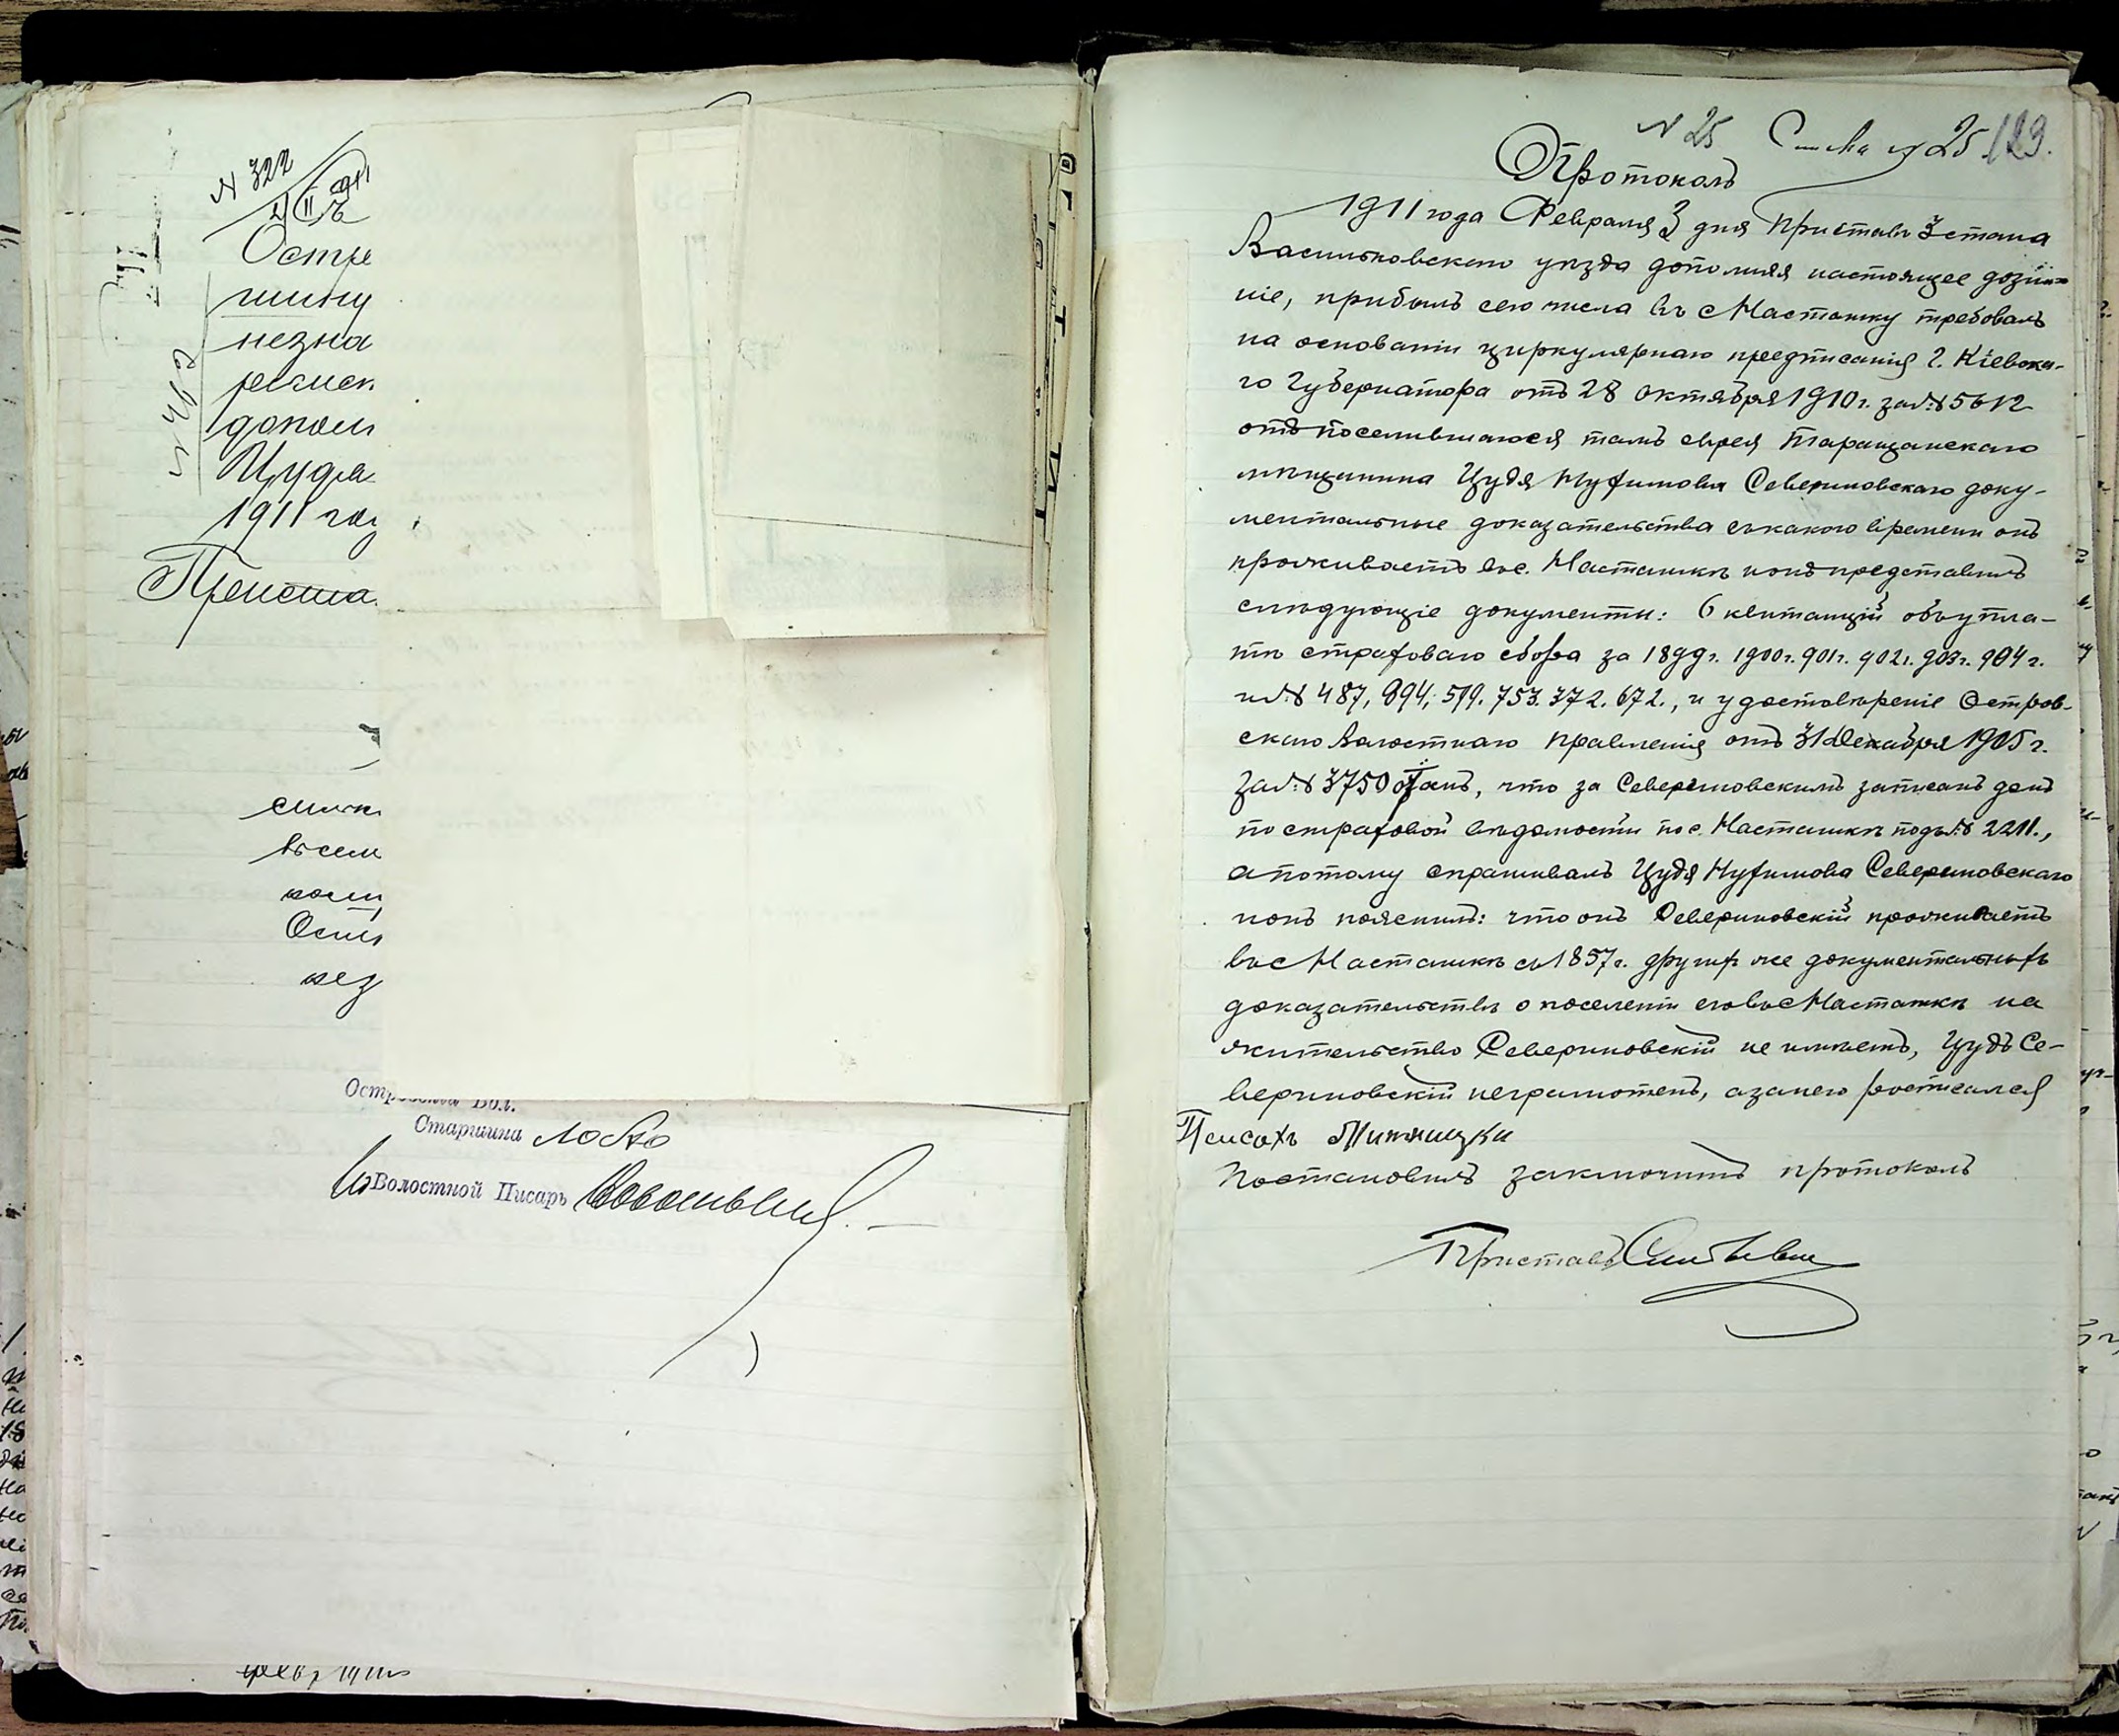 N 322
911
Остре
шину
незна
донесен
дополн
Цудя
1911 год
Приста
въ селе
Островская Вол.
Старшина Лобко
Волостной Писарь
февр 1911
N 25
129.
Протоколъ
1911 года Февраля 3 дня Приставъ 3 стана
Васильковскаго уѣзда дополняя настоящее дозна-
ніе, прибылъ сего числа въ с Насташку требовалъ
на основаніи циркулярнаго предписанія г. Кіевска-
го Губернатора отъ 28 Октября 1910 г. за № 5612
отъ поселившагося тамъ еврея Таращанскаго
мѣщанина Цудя Нухимова Севериновскаго доку-
ментальные доказательства съ какого времени онъ
проживаетъ въ с. Насташкѣ и онъ представилъ
слѣдующіе документы: 6 квитанцій объ упла-
тѣ страховаго сбора за 1899 г. 1900 г. 901 г. 902 г. 903 г. 904 г.
и № 487, 894, 519. 753. 372. 672., и удостовѣреніе Остров-
скаго Волостнаго Правленія отъ 31 Декабря 1905 г.
за № 3750 о томъ, что за Севериновскимъ записанъ домъ
по страховой вѣдомости по с. Насташкѣ подъ № 2211.,
а потому спрашивалъ Цудя Нухимова Севериновскаго
и онъ пояснилъ: что онъ Севериновскій проживаетъ
въ с Насташкѣ съ 1857 г. другихъ же документальныхъ
доказательствъ о поселеніи его въ с Насташкѣ на
жительство Севериновскій не имѣетъ, Цудь Се-
вериновскій неграмотенъ, а за него росписался
Пейсахъ
Постановилъ заключить протоколъ
Приставъ